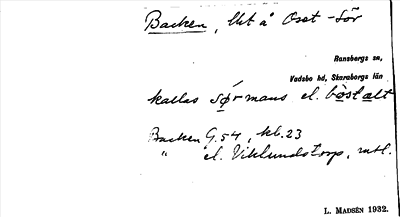 Backen, lht å Osst-Sör
Ransbergs sn,
Vadsbo hd, Skaraborgs län
kallas Sørmans el. bɔstalt
Backen G.54, kb.23
" el. Viklundstorp, mtl.
L. MADSÉN 1932.